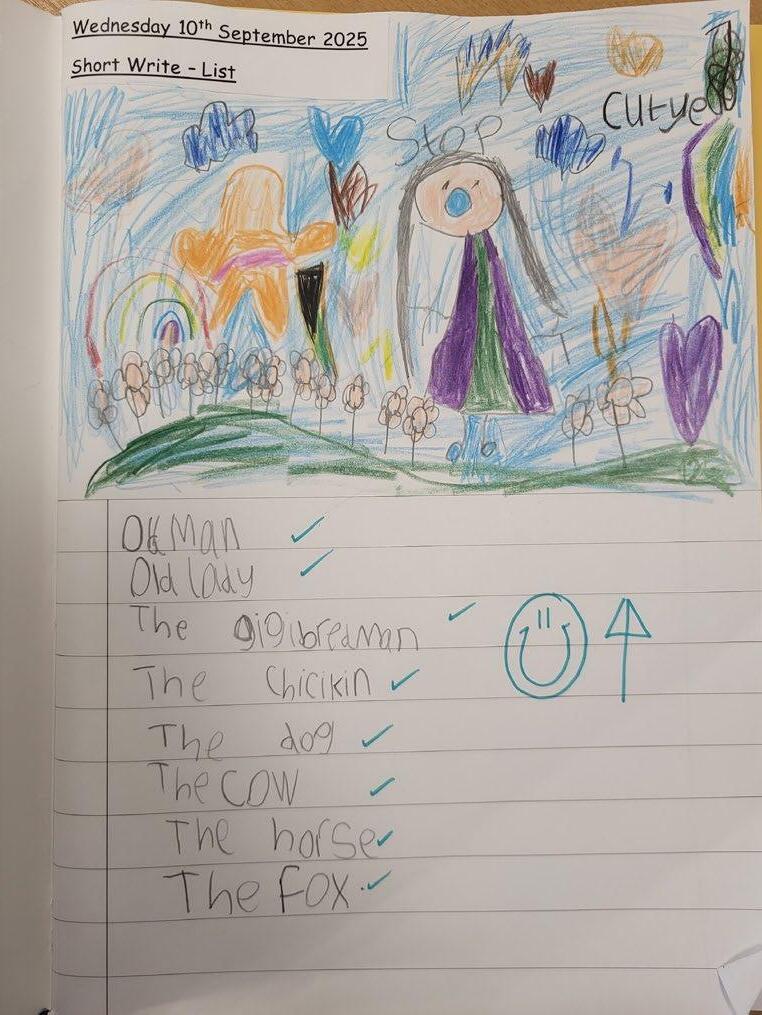 Wednesday 10th September 2025
Short Write - List
Stop
Old Man
Old lady
The gigibredman
The Chicikin
The dog
The COW
The horse
The FOX